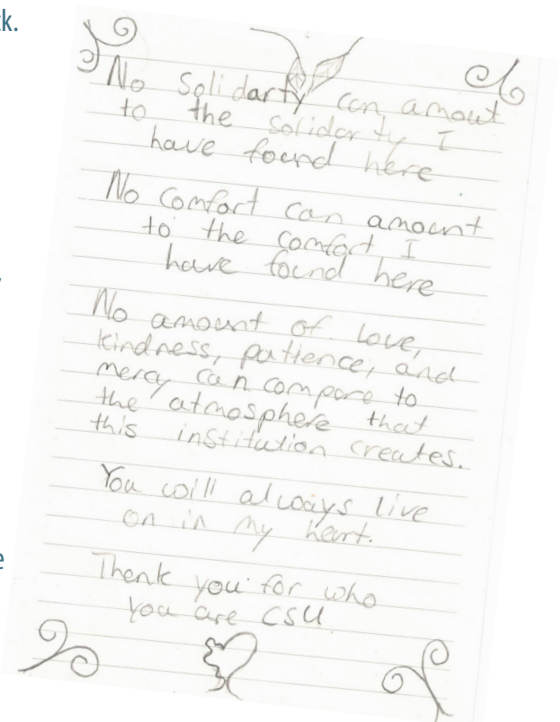 ck.
No Solidarty can amout
to the solidarty I
have found here
No comfort can amount
to the comfort I
have found here
No amount of love,
kindness, patience, and
mercy can compare to
the atmosphere that
this institution creates.
You will always live
on in my heart.
Thank you for who
you are CSU